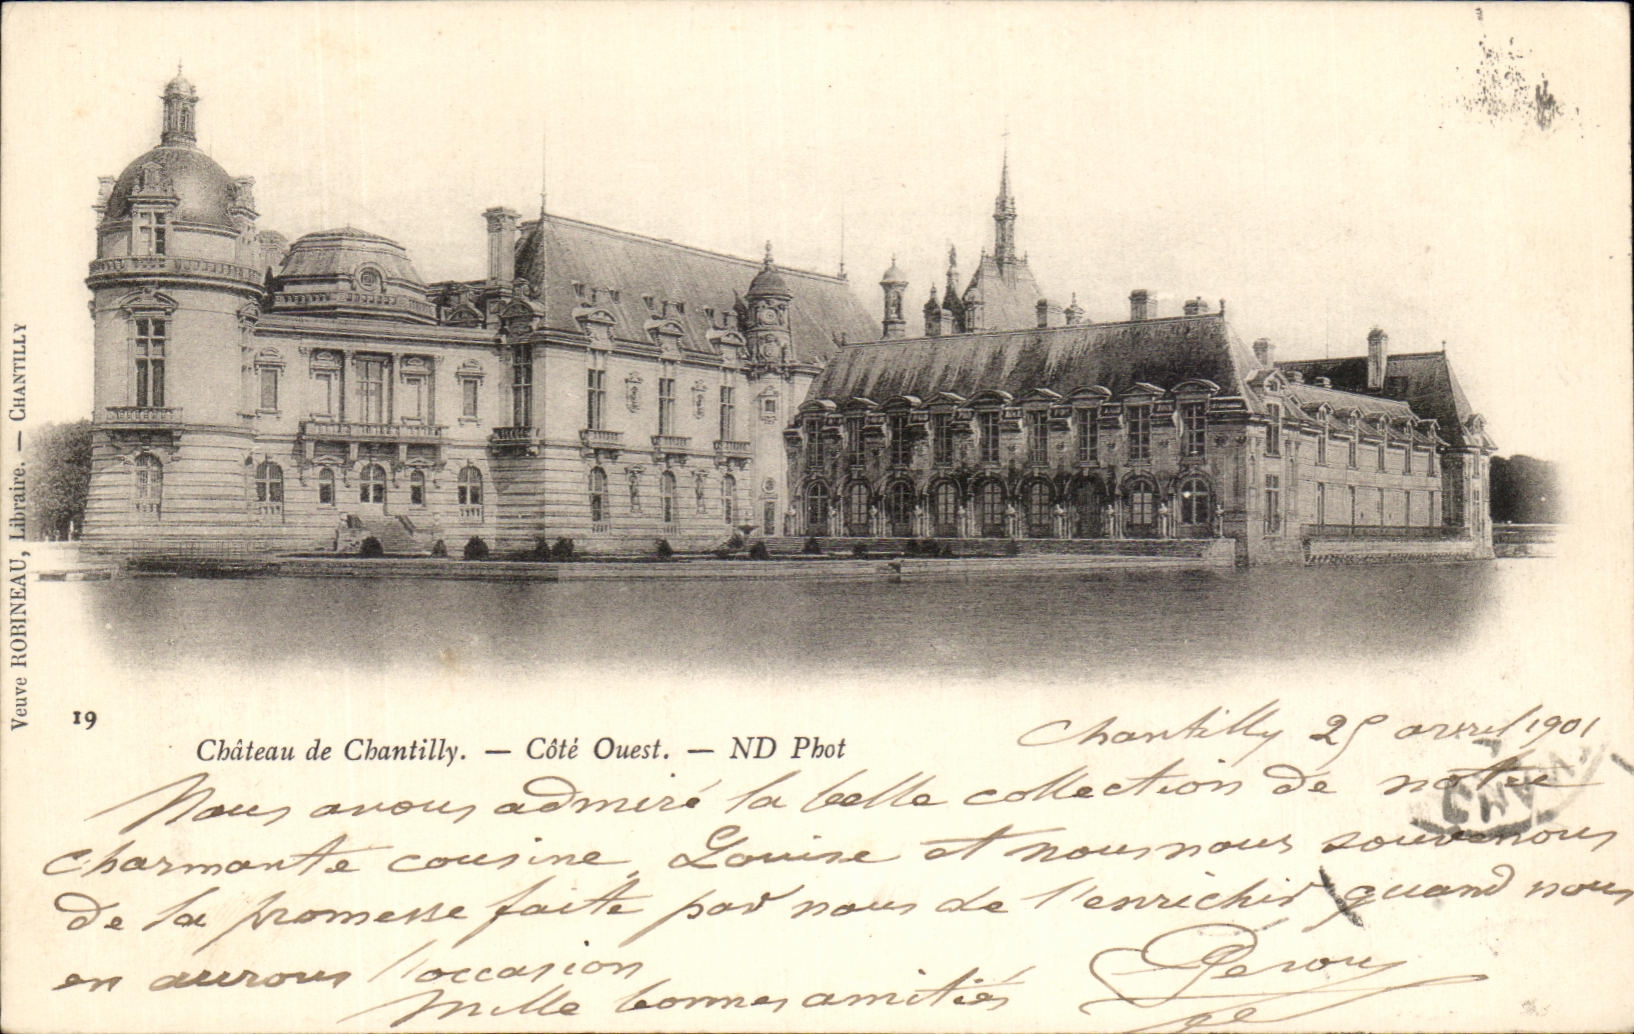 Veuve ROBINEAU, Libraire. — CHANTILLY
19
Château de Chantilly. — Côté Ouest. — ND Phot
Chantilly 25 avril 1901
Nous avons admiré la belle collection de notre
charmante cousine Louise et nous nous souvenons
de la promesse faite par nous de l'enrichir quand nous
en aurons l'occasion
Mille bonnes amitiés